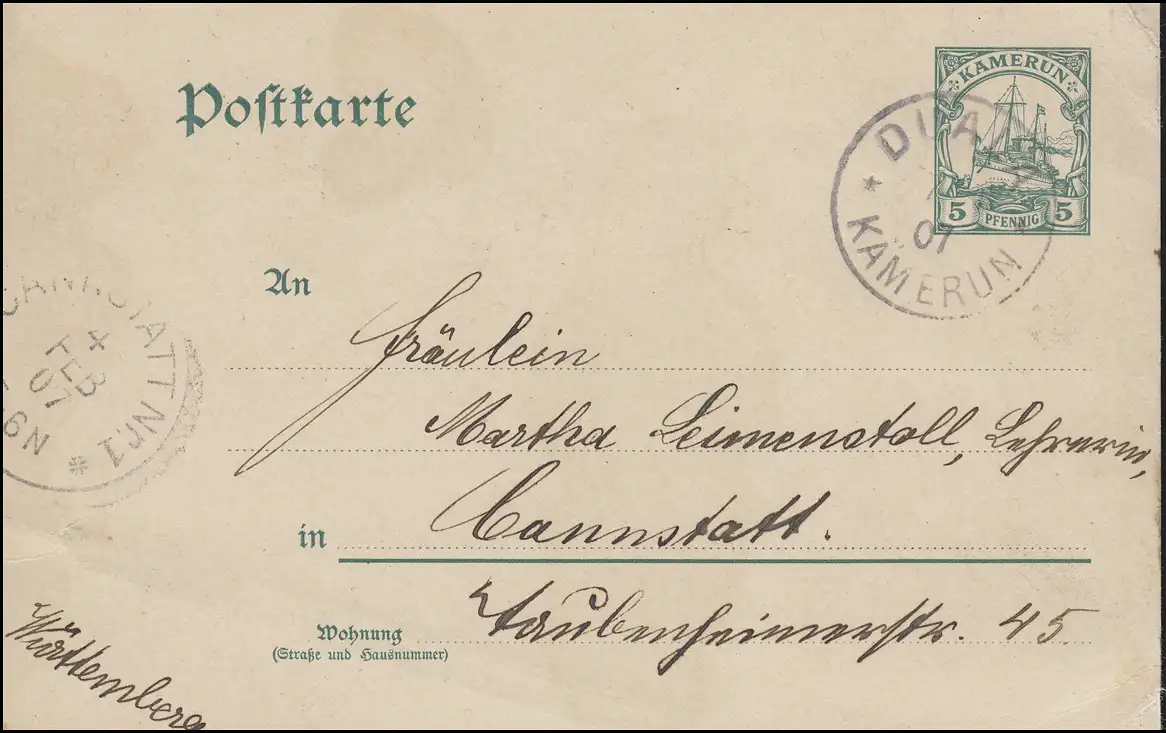 Postkarte
KAMERUN
5 PFENNIG 5
DUALA
07
KAMERUN
CANNSTATT Nr. 1
4
FEB
07
N9
An
Fräulein
Martha Leimenstoll, Lehrerin,
in Cannstatt.
Wohnung Taubenheimerstr. 45
(Straße und Hausnummer)
Württemberg